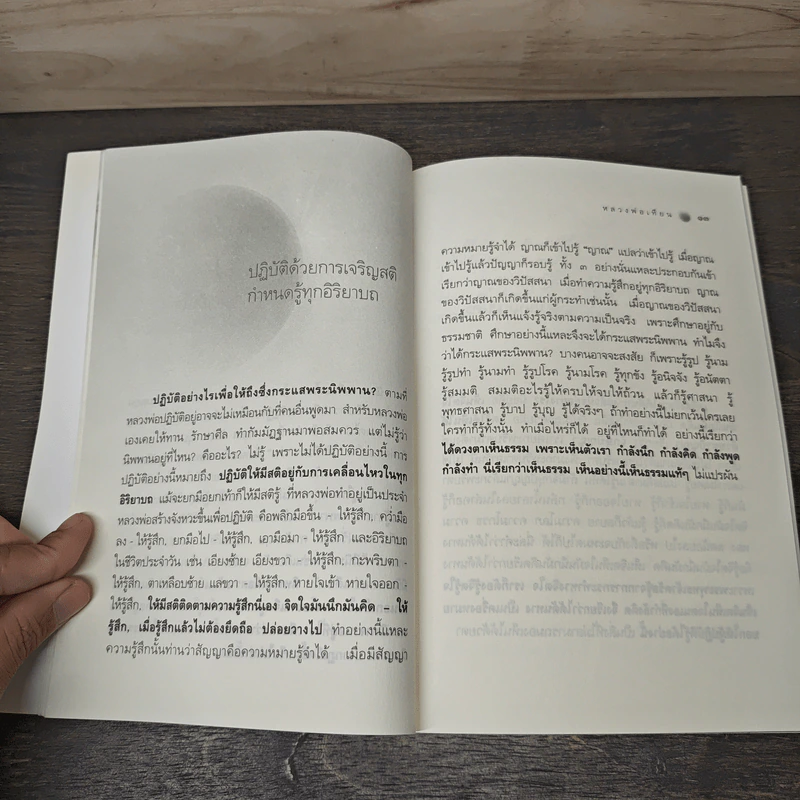 ปฏิบัติด้วยการเจริญสติ
กำหนดรู้ทุกอิริยาบถ
ปฏิบัติอย่างไรเพื่อให้ถึงซึ่งกระแสพระนิพพาน? ตามที่
หลวงพ่อปฏิบัติอยู่อาจจะไม่เหมือนกับที่คนอื่นพูดมา สำหรับหลวงพ่อ
เองเคยให้ทาน รักษาศีล ทำกัมมัฏฐานมาพอสมควร แต่ไม่รู้ว่า
นิพพานอยู่ที่ไหน? คืออะไร? ไม่รู้ เพราะไม่ได้ปฏิบัติอย่างนี้ การ
ปฏิบัติอย่างนี้หมายถึง ปฏิบัติให้มีสติอยู่กับการเคลื่อนไหวในทุก
อิริยาบถ แม้จะยกมือยกเท้าก็ให้มีสติรู้ ที่หลวงพ่อทำอยู่เป็นประจำ
หลวงพ่อสร้างจังหวะขึ้นเพื่อปฏิบัติ คือพลิกมือขึ้น - ให้รู้สึก, คว่ำมือ
ลง - ให้รู้สึก, ยกมือไป - ให้รู้สึก, เอามือมา - ให้รู้สึก และอิริยาบถ
ในชีวิตประจำวัน เช่น เอียงซ้าย เอียงขวา - ให้รู้สึก, กะพริบตา -
ให้รู้สึก, ตาเหลือบซ้าย แลขวา - ให้รู้สึก, หายใจเข้า หายใจออก -
ให้รู้สึก, ให้มีสติติดตามความรู้สึกนี้เอง จิตใจมันนึกมันคิด – ให้
รู้สึก, เมื่อรู้สึกแล้วไม่ต้องยึดถือ ปล่อยวางไป ทำอย่างนี้แหละ
ความรู้สึกนั้นท่านว่าสัญญาคือความหมายรู้จำได้ เมื่อมีสัญญา
หลวงพ่อเทียน ๑๓
ความหมายรู้จำได้ ญาณก็เข้าไปรู้ "ญาณ" แปลว่าเข้าไปรู้ เมื่อญาณ
เข้าไปรู้แล้วปัญญาก็รอบรู้ ทั้ง ๓ อย่างนั่นแหละประกอบกันเข้า
เรียกว่าญาณของวิปัสสนา เมื่อทำความรู้สึกอยู่ทุกอิริยาบถ ญาณ
ของวิปัสสนาก็เกิดขึ้นแก่ผู้กระทำเช่นนั้น เมื่อญาณของวิปัสสนา
เกิดขึ้นแล้วก็เห็นแจ้งรู้จริงตามความเป็นจริง เพราะศึกษาอยู่กับ
ธรรมชาติ ศึกษาอย่างนี้แหละจึงจะได้กระแสพระนิพพาน ทำไมจึง
ว่าได้กระแสพระนิพพาน? บางคนอาจจะสงสัย ก็เพราะรู้รูป รู้นาม
รู้รูปทำ รู้นามทำ รู้รูปโรค รู้นามโรค รู้ทุกขัง รู้อนิจจัง รู้อนัตตา
รู้สมมติ สมมติอะไรรู้ให้ครบให้จบให้ถ้วน แล้วก็รู้ศาสนา รู้
พุทธศาสนา รู้บาป รู้บุญ รู้ได้จริงๆ ถ้าทำอย่างนี้ไม่ยกเว้นใครเลย
ใครทำก็รู้ทั้งนั้น ทำเมื่อไหร่ก็ได้ อยู่ที่ไหนก็ทำได้ อย่างนี้เรียกว่า
ได้ดวงตาเห็นธรรม เพราะเห็นตัวเรา กำลังนึก กำลังคิด กำลังพูด
กำลังทำ นี่เรียกว่าเห็นธรรม เห็นอย่างนี้เห็นธรรมแท้ๆ ไม่แปรผัน